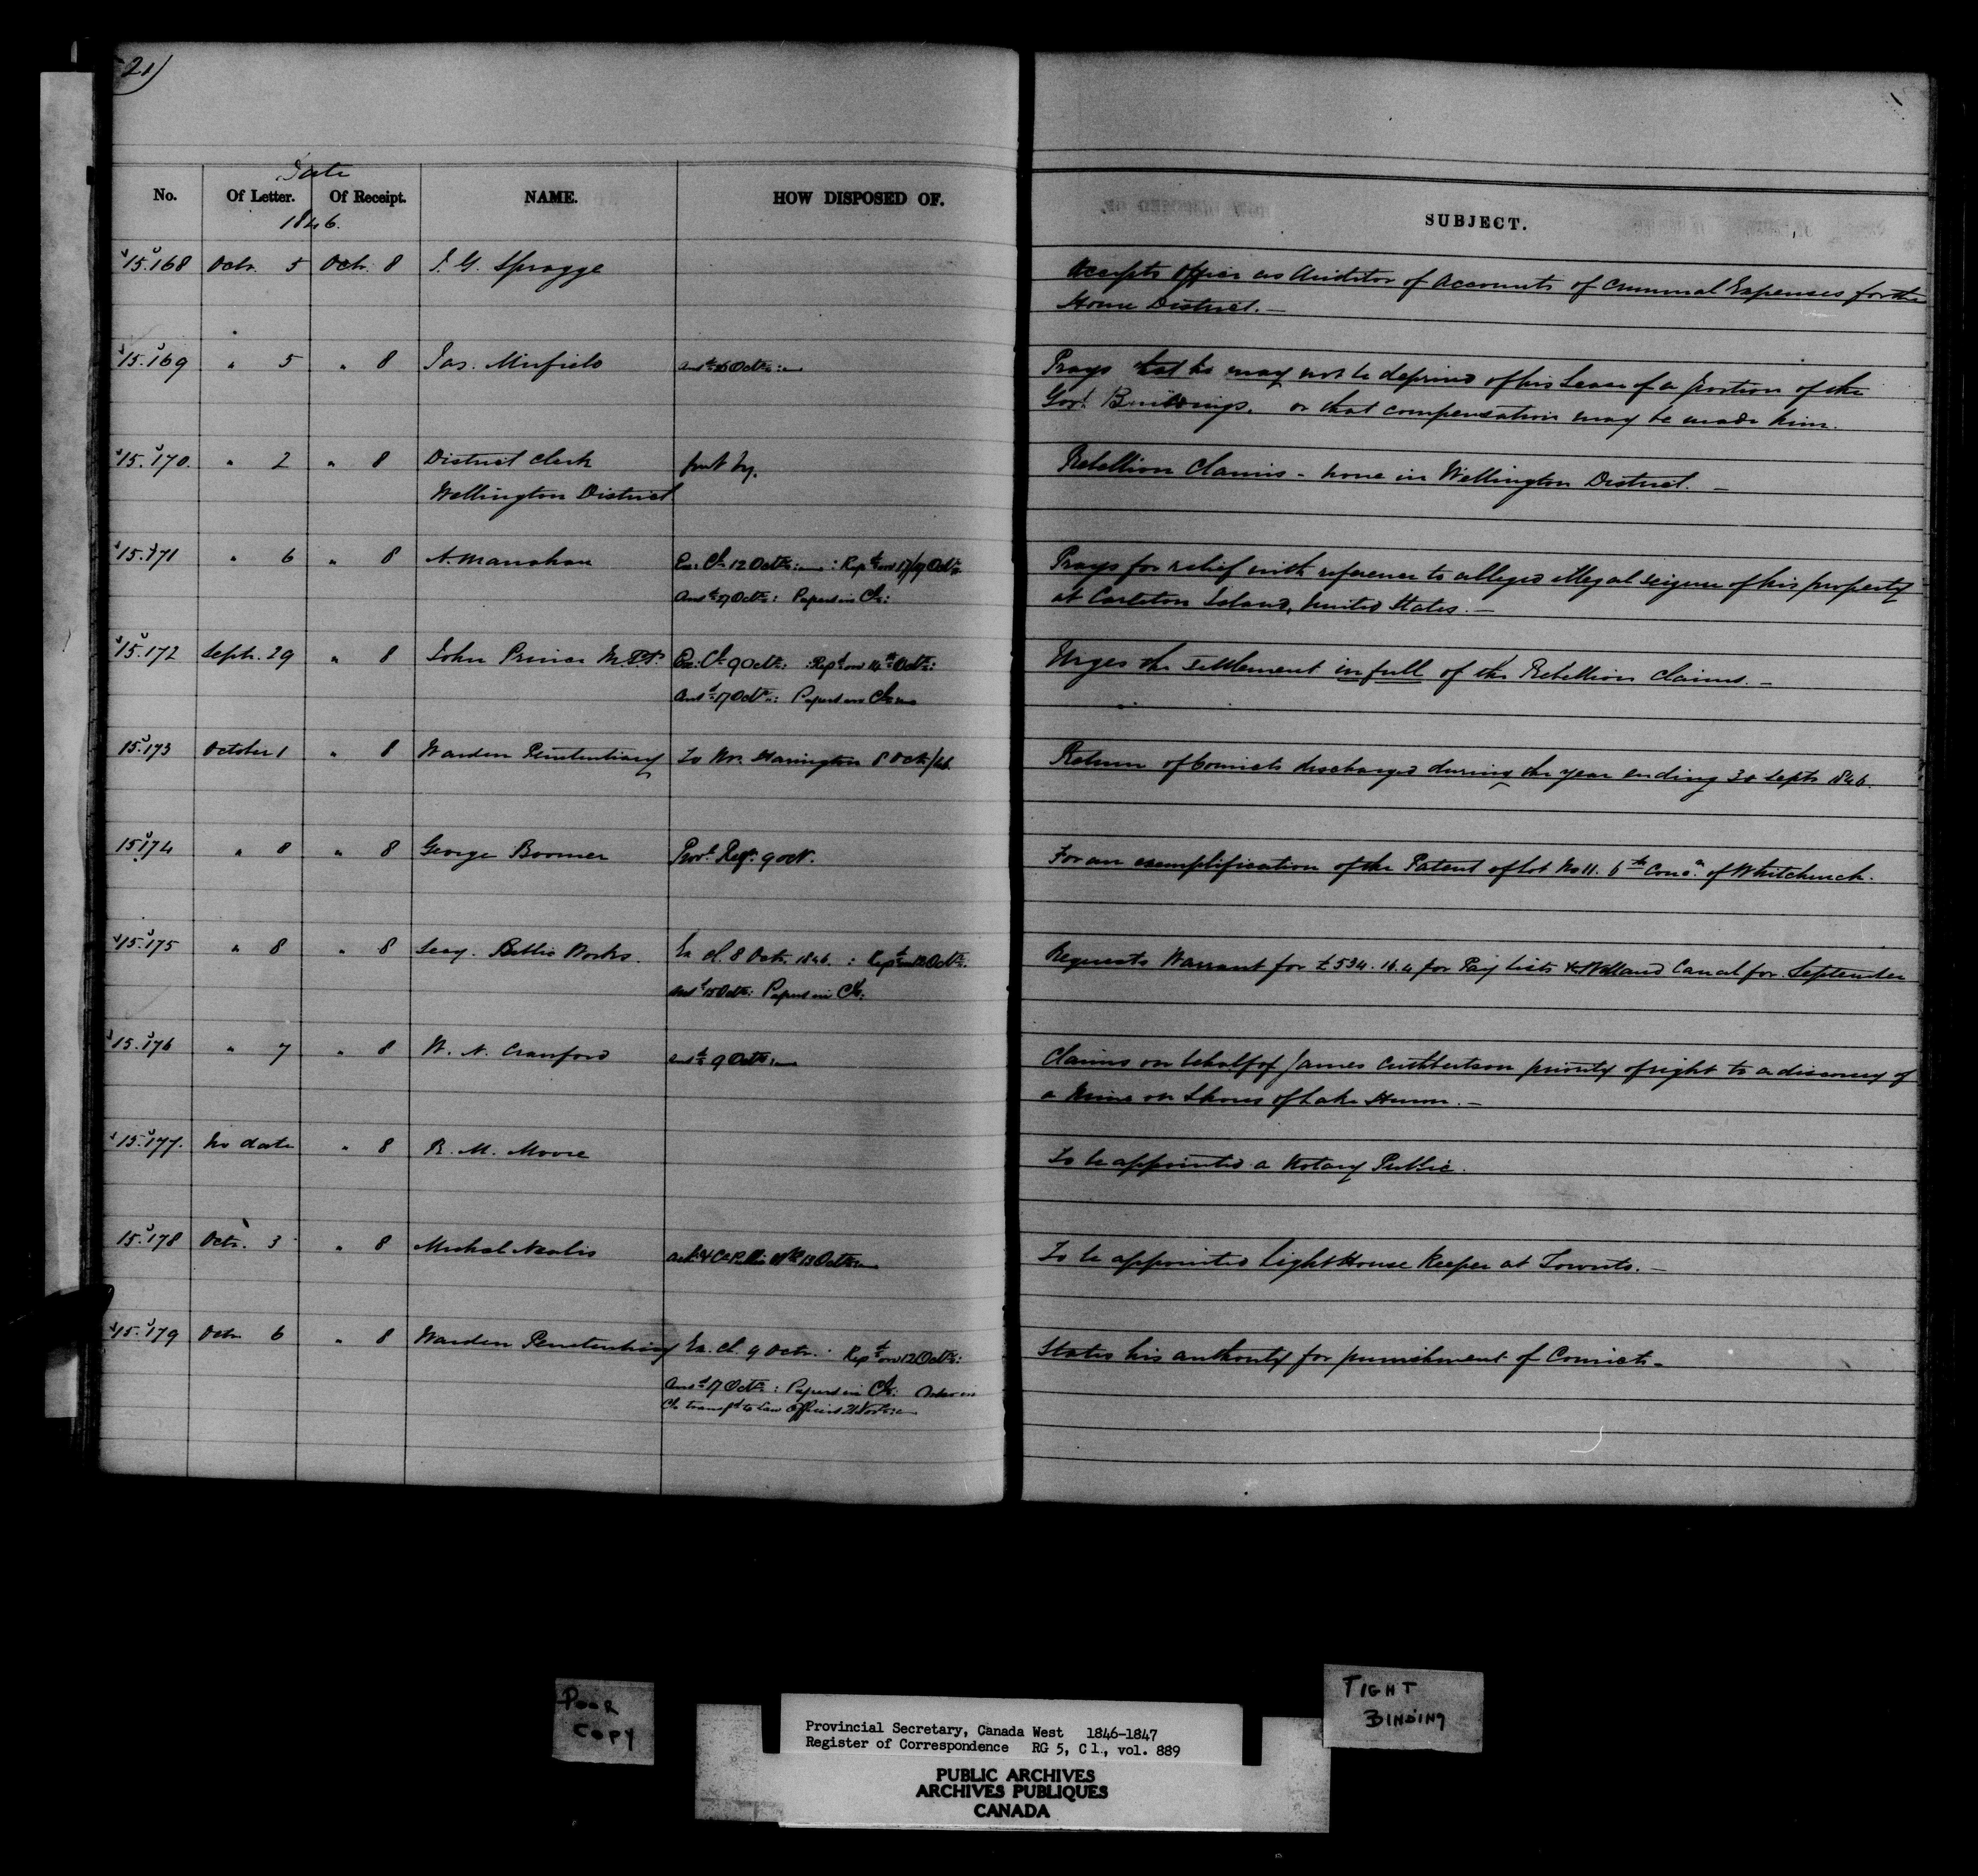 21)
Date
No. Of Letter. Of Receipt. NAME. HOW DISPOSED OF. SUBJECT.
1846.
15.168 Octr. 5 Octr. 8 J. G. Spragge Accepts Office as Auditor of Accounts of Criminal Expenses for the
Home District. —
15.169 " 5 " 8 Jas. Mirfield Ansd Octr: Prays that he may not be deprived of his Lease of a portion of the
Govt. Buildings, or that compensation may be made him.
15.170. " 2 " 8 District Clerk put by. Rebellion Claims - none in Wellington District. —
Wellington District
15.171 " 6 " 8 A. Manahan Ex: Cl 12 Octr: : Repd on 17/19 Octr. Prays for relief with reference to alleged illegal seizure of his property
Ansd 27 Octr: Papers in Cl: at Carleton Island, United States. —
15.172 Septr. 29 " 8 John Prince M.P.P. Ex: Cl 9 Octr: Repd on 14th Octr: Urges the settlement in full of the Rebellion Claims. —
Ansd 17 Octr: Papers in Cl:
15.173 October 1 " 8 Warden Penitentiary To Mr. Harington 8 Octr/46. Return of Convicts discharged during the year ending 30 Septr 1846.
15.174 " 8 " 8 George Boomer Provl. Regr. 9 Oct. For an exemplification of the Patent of Lot No 11. 6th Conc.n of Whitchurch.
15.175 " 8 " 8 Secy. Public Works. Ex Cl. 8 Octr. 1846. : Repd on 12 Octr. Requests Warrant for £534.16.4 for Pay Lists Welland Canal for September
Ansd 15 Octr: Papers in Cl:
15.176 " 7 " 8 W. N. Crawford Ansd 9 Octr: Claims on behalf of James Cuthbertson priority of right to a discovery of
a Mine on Shores of Lake Huron. —
15.177. No date " 8 R. M. Moore To be appointed a Notary Public.
15.178 Octr. 3 " 8 Michael Public Wks 13 Octr: To be appointed Light House Keeper at Toronto. —
15.179 Octr 6 " 8 Warden Penitentiary Ex. Cl. 9 Octr. Repd on 12 Octr: States his authority for punishment of Convicts —
Ansd 17 Octr: Papers in Cl:
Cl: transfd to Law Officers 21 Novr:
POOR
COPY
TIGHT
BINDING
Provincial Secretary, Canada West 1846-1847
Register of Correspondence RG 5, C 1., vol. 889
PUBLIC ARCHIVES
ARCHIVES PUBLIQUES
CANADA